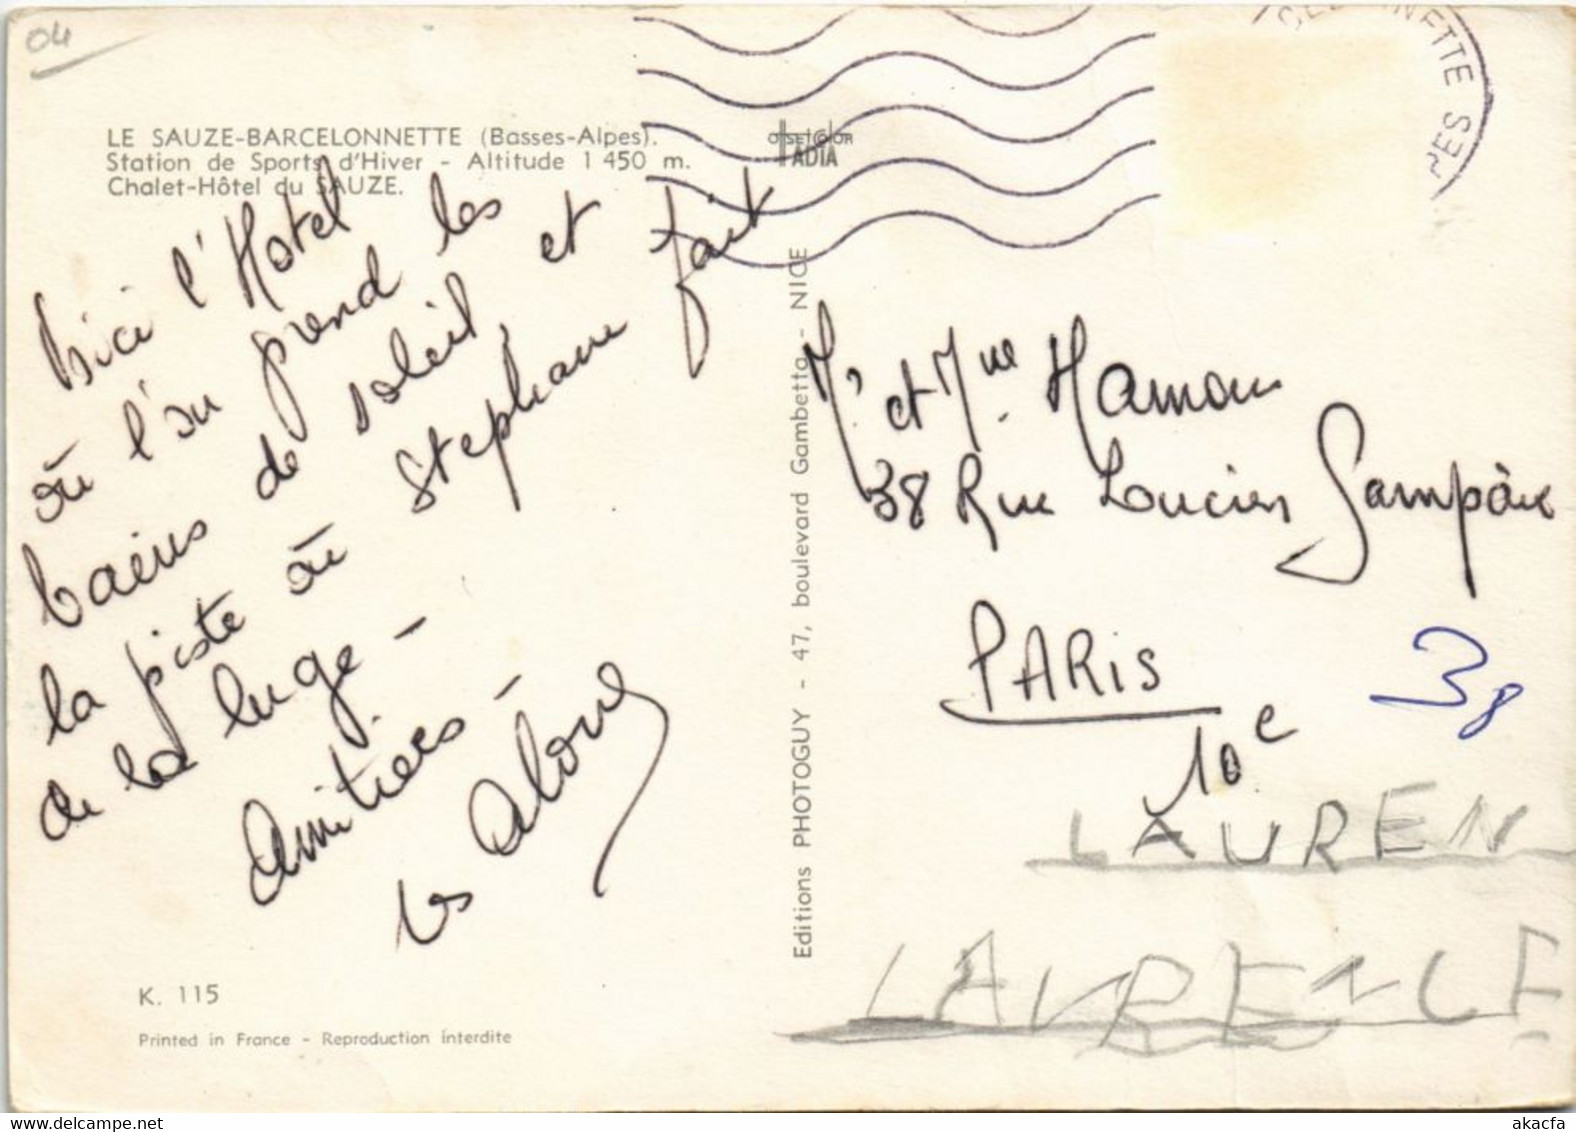 04
LE SAUZE-BARCELONNETTE (Basses-Alpes).
Station de Sports d'Hiver - Altitude 1 450 m.
Chalet-Hôtel du SAUZE.
OFFSETCOLOR
IADIA
NETTE
Voici l'Hotel
où l'on prend les
bains de soleil, et
la piste où Stephane fait
de la luge -
Amitiés -
les
Editions PHOTOGUY - 47, boulevard Gambetta - NICE
Mr et Mme Hamon
38 Rue Lucien Sampaix
PARIS
10e
38
LAUREN
LAURENCE
K. 115
Printed in France - Reproduction interdite
www.delcampe.net
akacfa